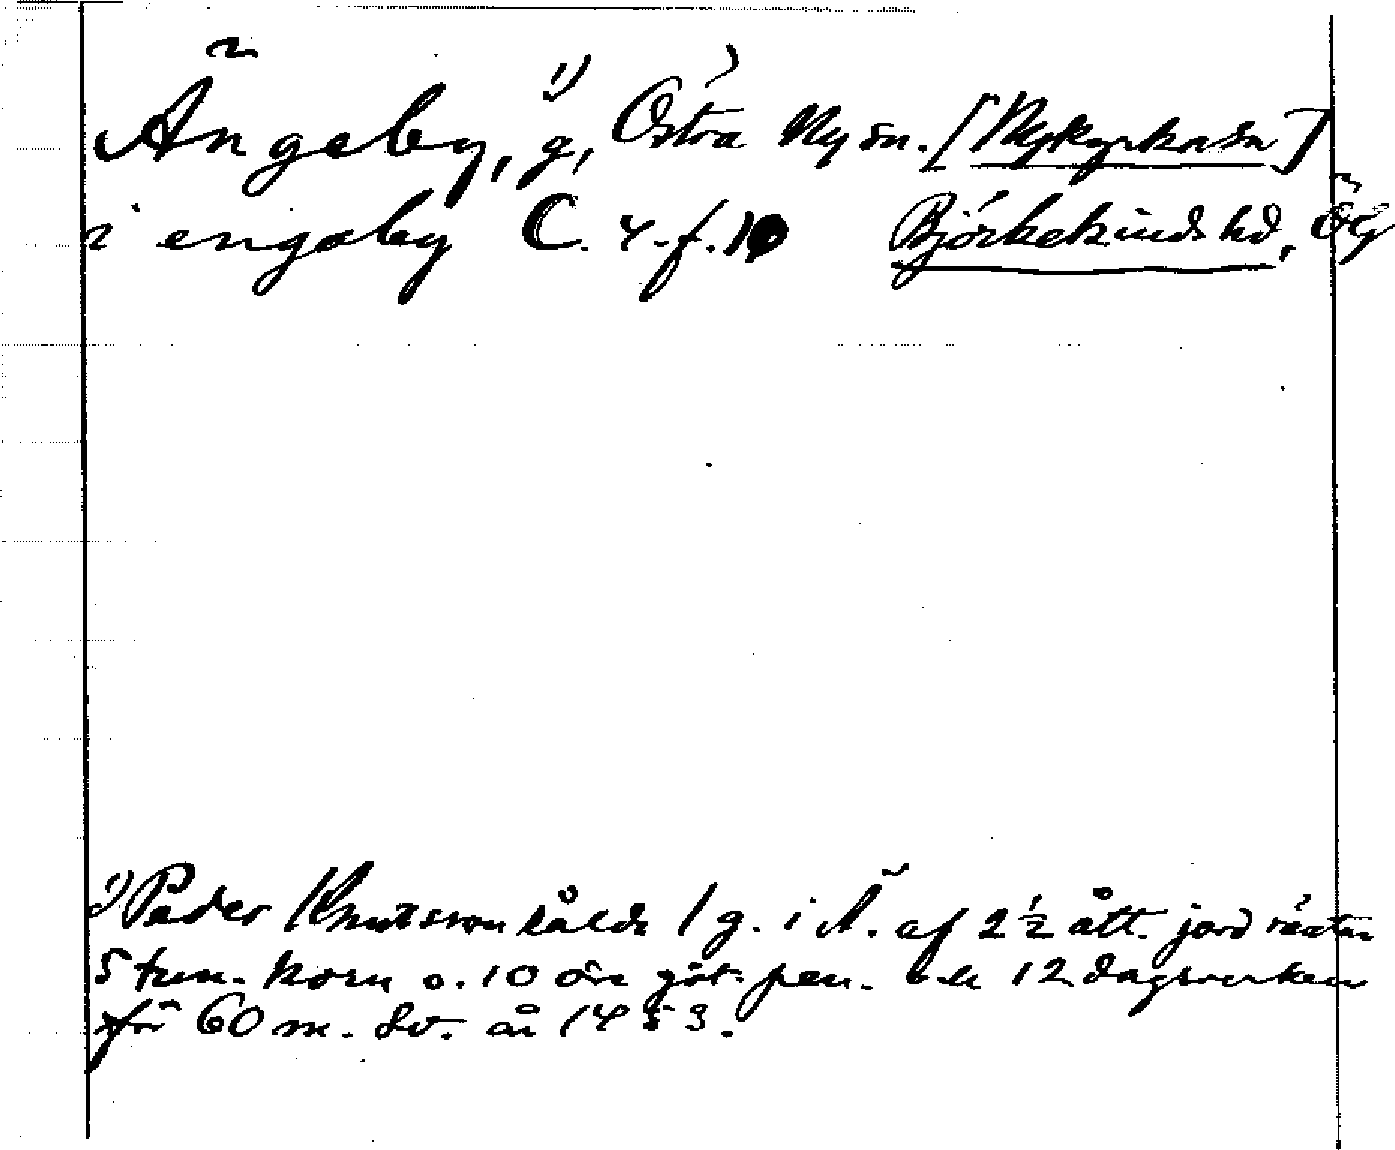 Ängeby, g,¹⁾ Östra Ny sn. [Nykyrka sn]
i engøby C. 4. f. 10 Björkekinds hd, Ög
¹⁾ Päder Knutsson sålde 1 g. i Ä. af 2½ ått. jord räntar
5 tun. korn o. 10 öre göt. pen. och 12 dagsverken
för 60 m. Sv. år 1453.